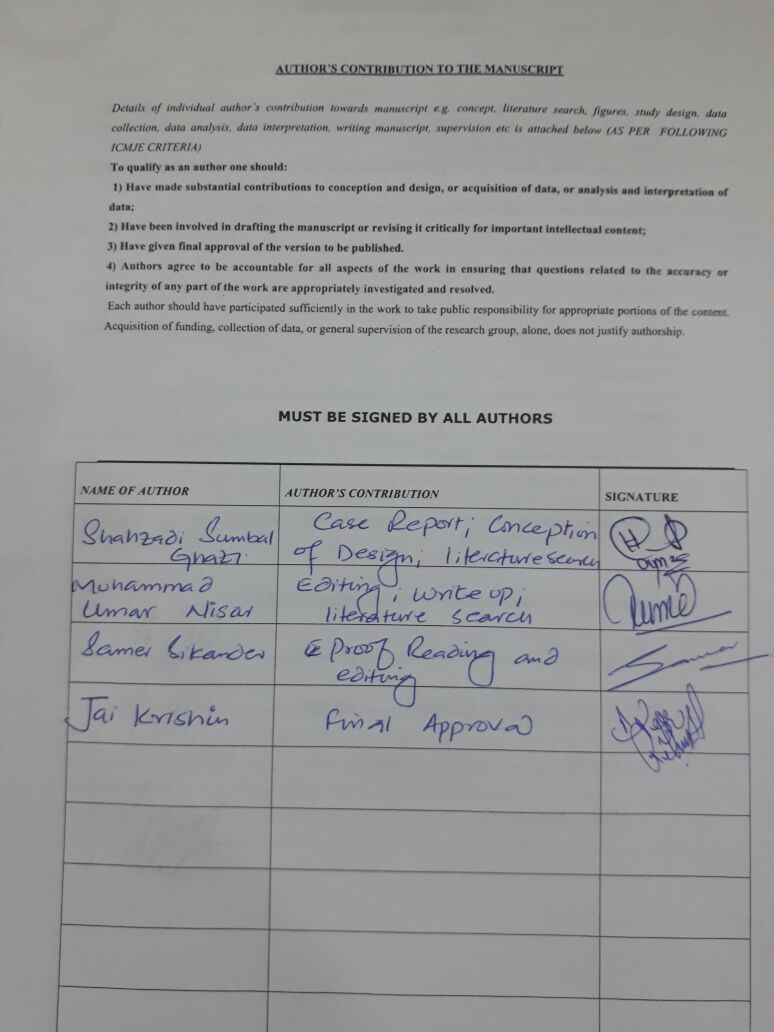 AUTHOR'S CONTRIBUTION TO THE MANUSCRIPT
Details of individual author's contribution towards manuscript e.g. concept, literature search, figures, study design, data
collection, data analysis, data interpretation, writing manuscript, supervision etc is attached below (AS PER FOLLOWING
ICMJE CRITERIA)
To qualify as an author one should:
1) Have made substantial contributions to conception and design, or acquisition of data, or analysis and interpretation of
data;
2) Have been involved in drafting the manuscript or revising it critically for important intellectual content;
3) Have given final approval of the version to be published.
4) Authors agree to be accountable for all aspects of the work in ensuring that questions related to the accuracy or
integrity of any part of the work are appropriately investigated and resolved.
Each author should have participated sufficiently in the work to take public responsibility for appropriate portions of the content.
Acquisition of funding, collection of data, or general supervision of the research group, alone, does not justify authorship.
MUST BE SIGNED BY ALL AUTHORS
NAME OF AUTHOR AUTHOR'S CONTRIBUTION SIGNATURE
Shahzadi Sumbal
Ghazi
Case Report; Conception
of Design; literature search
Muhammad
Umar Nisar
Editing; write up;
literature search
Samer Sikander
Proof Reading and
editing
Jai Krishin
Final Approval